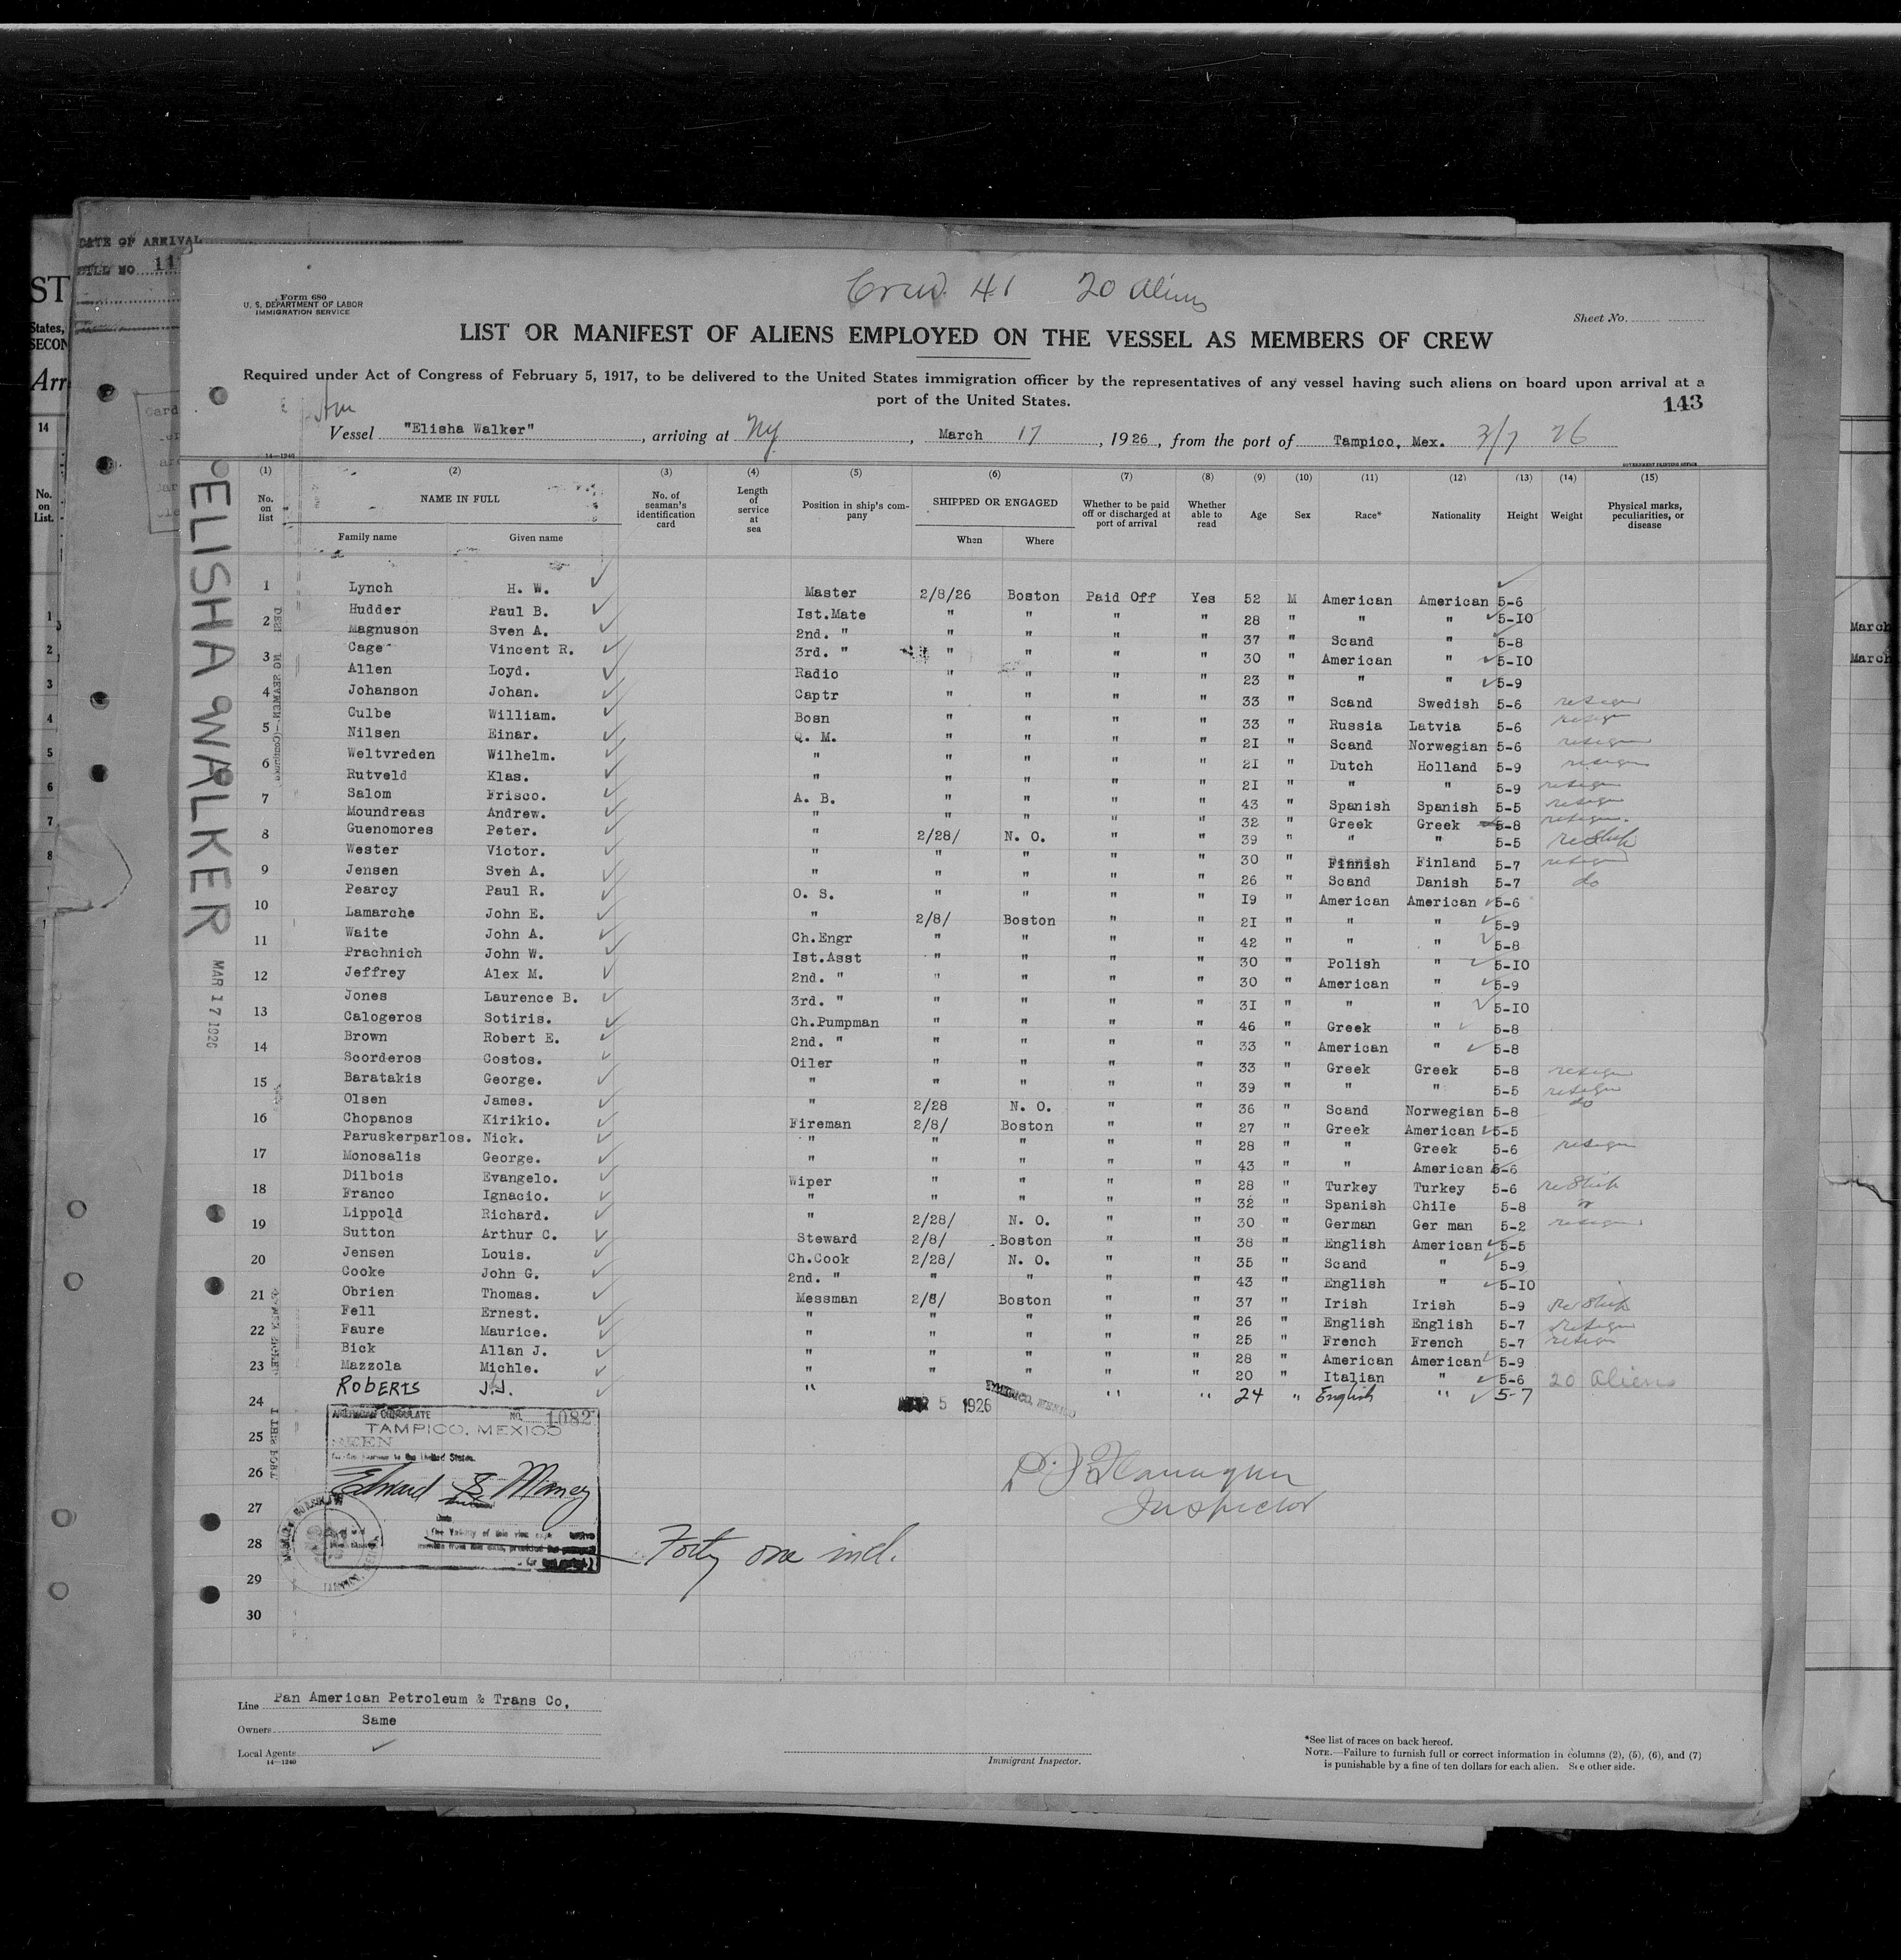 DATE OF ARRIVAL
BILL NO 11
ST
States,
SECON
Arr
14
No.
on
List.
1
2
3
4
5
6
7
8
Card
March
March
Crew. 41 20 Aliens
Form 680
U. S. DEPARTMENT OF LABOR
IMMIGRATION SERVICE
Sheet No.
LIST OR MANIFEST OF ALIENS EMPLOYED ON THE VESSEL AS MEMBERS OF CREW
Required under Act of Congress of February 5, 1917, to be delivered to the United States immigration officer by the representatives of any vessel having such aliens on board upon arrival at a
port of the United States.
143
Am
Vessel "Elisha Walker", arriving at NY, March 17, 1926, from the port of Tampico, Mex. 3/7 26
14-1240
GOVERNMENT PRINTING OFFICE
ELISHA WALKER
MAR 17 1926
(1) (2) (3) (4) (5) (6) (7) (8) (9) (10) (11) (12) (13) (14) (15)
No. on list NAME IN FULL No. of seaman's identification card Length of service at sea Position in ship's company SHIPPED OR ENGAGED Whether to be paid off or discharged at port of arrival Whether able to read Age Sex Race* Nationality Height Weight Physical marks, peculiarities, or disease
Family name Given name When Where
Lynch H. W. Master 2/8/26 Boston Paid Off Yes 52 M American American 5-6
Hudder Paul B. Ist.Mate " " " " 28 " " " 5-IO
Magnuson Sven A. 2nd. " " " " " 37 " Scand " 5-8
Cage Vincent R. 3rd. " " " " " 30 " American " 5-IO
Allen Loyd. Radio " " " " 23 " " " 5-9
Johanson Johan. Captr " " " " 33 " Scand Swedish 5-6 resign
Gulbe William. Bosn " " " " 33 " Russia Latvia 5-6 resign
Nilsen Einar. Q. M. " " " " 2I " Scand Norwegian 5-6 resign
Weltvreden Wilhelm. " " " " " 2I " Dutch Holland 5-9 resign
Rutveld Klas. " " " " " 2I " " " 5-9 resign
Salom Frisco. A. B. " " " " 43 " Spanish Spanish 5-5 resign
Moundreas Andrew. " " " " " 32 " Greek Greek 5-8 resign.
Guenomores Peter. " 2/28/ N. O. " " 39 " " " 5-5 reship
Wester Victor. " " " " " 30 " Finnish Finland 5-7 resign
Jensen Sven A. " " " " " 26 " Scand Danish 5-7 do
Pearcy Paul R. O. S. " " " " I9 " American American 5-6
Lamarche John E. " 2/8/ Boston " " 2I " " " 5-9
Waite John A. Ch.Engr " " " " 42 " " " 5-8
Prachnich John W. Ist.Asst " " " " 30 " Polish " 5-IO
Jeffrey Alex M. 2nd. " " " " " 30 " American " 5-9
Jones Laurence B. 3rd. " " " " " 3I " " " 5-IO
Calogeros Sotiris. Ch.Pumpman " " " " 46 " Greek " 5-8
Brown Robert E. 2nd. " " " " " 33 " American " 5-8
Scorderos Costos. Oiler " " " " 33 " Greek Greek 5-8 resign
Baratakis George. " " " " " 39 " " " 5-5 resign
Olsen James. " 2/28 N. O. " " 36 " Scand Norwegian 5-8 do
Chopanos Kirikio. Fireman 2/8/ Boston " " 27 " Greek American 5-5
Paruskerparlos. Nick. " " " " " 28 " " Greek 5-6 resign
Monosalis George. " " " " " 43 " " American 5-6
Dilbois Evangelo. Wiper " " " " 28 " Turkey Turkey 5-6 reship
Franco Ignacio. " " " " " 32 " Spanish Chile 5-8 "
Lippold Richard. " 2/28/ N. O. " " 30 " German Ger man 5-2 resign
Sutton Arthur C. Steward 2/8/ Boston " " 38 " English American 5-5
Jensen Louis. Ch.Cook 2/28/ N. O. " " 35 " Scand " 5-9
Cooke John G. 2nd. " " " " " 43 " English " 5-IO
Obrien Thomas. Messman 2/8/ Boston " " 37 " Irish Irish 5-9 reship
Fell Ernest. " " " " " 26 " English English 5-7 resign
Faure Maurice. " " " " " 25 " French French 5-7 resign
Bick Allan J. " " " " " 28 " American American 5-9
Mazzola Michle. " " " " " 20 " Italian " 5-6 20 Aliens
ROBERTS J.J. " " " 24 " English " 5-7
1
2
3
4
5
6
7
8
9
10
11
12
13
14
15
16
17
18
19
20
21
22
23
24
25
26
27
28
29
30
5 1926
TAMPICO, MEXICO
AMERICAN CONSULATE NO. 1082
TAMPICO, MEXICO
SEEN
to the United States.
Edward S. Maney
Forty one incl.
Flanagan
Inspector
Line Pan American Petroleum & Trans Co.
Owners Same
Local Agents
14-1240
Immigrant Inspector.
*See list of races on back hereof.
NOTE.—Failure to furnish full or correct information in columns (2), (5), (6), and (7)
is punishable by a fine of ten dollars for each alien. See other side.